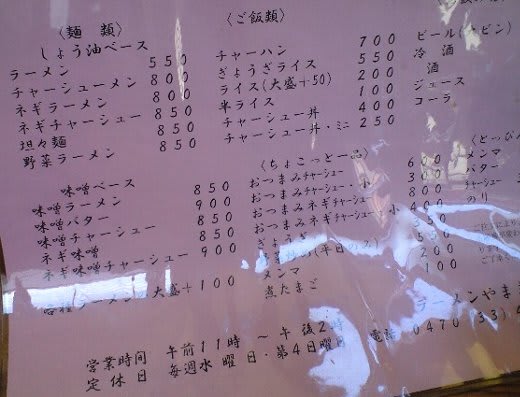 〈麺類〉
しょう油ベース
ラーメン 550
チャーシューメン 800
ネギラーメン 800
ネギチャーシュー 850
坦々麺 850
野菜ラーメン 850
味噌ベース
味噌ラーメン 850
味噌バター 900
味噌チャーシュー 850
ネギ味噌 850
ネギ味噌チャーシュー 900
ラーメン 大盛+100
〈ご飯類〉
チャーハン 700
ぎょうざライス 550
ライス(大盛+50) 200
半ライス 100
チャーシュー丼 400
チャーシュー丼・ミニ 250
〈ちょこっと一品〉
おつまみチャーシュー 600
おつまみチャーシュー・小 300
おつまみネギチャーシュー 800
おつまみネギチャーシュー・小 400
ぎょうざ
(平日のみ)
メンマ 200
煮たまご 100
ビール
冷酒
酒
ジュース
コーラ
メンマ
バター
チャーシュー
のり
ラーメンやま
営業時間 午前11時 ~ 午後2時
定休日 毎週水曜日・第4日曜日
電話 0470(33)4